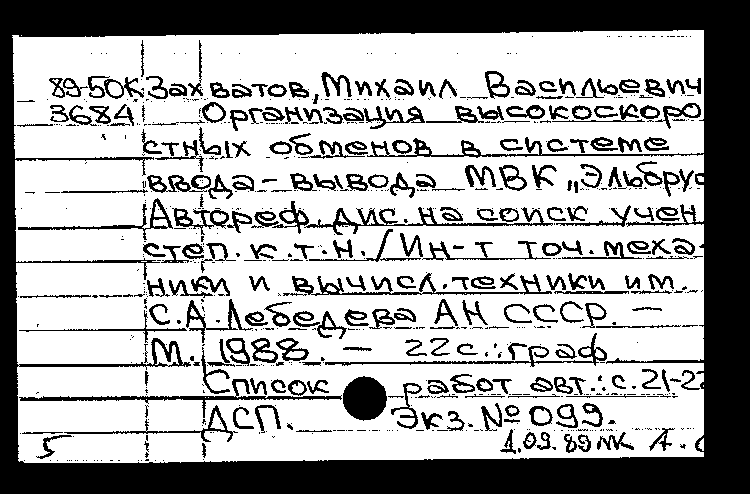 89-50К Захватов, Михаил Васильевич
3684 Организация высокоскоро
стных обменов в системе
ввода-вывода МВК „Эльбрус
Автореф. дис. на соиск. учен
степ. к.т.н. / Ин-т точ. меха-
ники и вычисл. техники им.
С.А. Лебедева АН СССР. —
М. 1988. — 22 с.: граф.
Список работ авт.: с. 21-22
ДСП. Экз. № 099.
5 1.09.89 МК А.